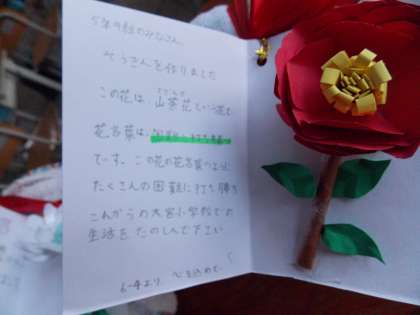 5年4組のみなさん
ぞうきんを作りました
この花は、山茶花という花で
さざんか
花言葉は、困難に打ち勝つ
です。この花の花言葉のように
たくさんの困難に打ち勝ち
これからの大宮小学校での
生活をたのしんで下さい
6-4より 心を込めて。